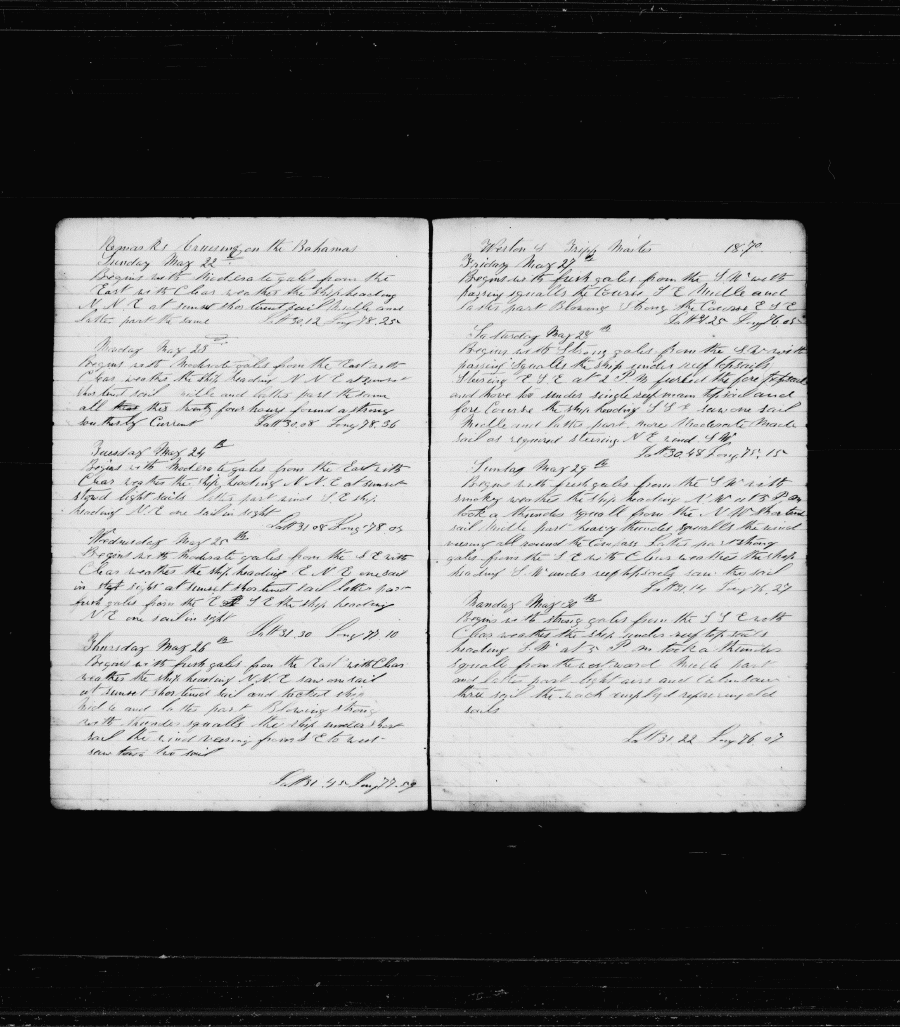 Remarks Cruising on the Bahamas
Sunday May 22nd
Begins with Moderate gales from the
East with Clear weather the ship heading
N. N. E at sunset shortened sail Middle and
latter part the same Latt 30.12 Long 78.25
Monday May 23
Begins with Moderate gales from the East with
Clear weather the ship heading N N E at sunset
shortened sail middle and latter part the same
all this twenty four hours found a strong
southerly Current Latt 30.08 Long 78.36
Tuesday May 24th
Begins with Moderate gales from the East with
Clear weather the ship heading N. N. E at sunset
stowed light sails latter part wind S. E ship
heading N. E one sail in sight
Latt 31 08 Long 78 09
Wednesday May 25th
Begins with Moderate gales from the S E with
Clear weather the ship heading E N E one sail
in sight at sunset shortened sail latter part
fresh gales from the E S E the ship heading
N. E one sail in sight
Latt 31.30 Long 77 10
Thursday May 26th
Begins with fresh gales from the East with Clear
weather the ship heading N. N. E saw one sail
at sunset shortened sail and tacked ship
middle and latter part Blowing strong
with thunder squalls the ship under short
sail the wind veering from S E to west
saw two sail
Latt 31.45 Long 77.59
Weston S Tripp Master 1870
Friday May 27th
Begins with fresh gales from the S. W with
passing squalls the Course S E Middle and
latter part Blowing strong the Course E S E
Latt 31.25 Long 76.05
Saturday May 28th
Begins with Strong gales from the S. W with
passing squalls the ship under reef topsails
Steering E. S. E at 2 P. M furled the fore topsail
and hove to under single reef main topsail and
fore Course the ship heading S S E saw one sail
Middle and latter part more Moderate Made
sail as required steering N E wind S W
Latt 30.48 Long 75.15
Sunday May 29th
Begins with fresh gales from the S. W with
smoky weather the ship heading N. W at 5 P M
took a thunder squall from the N W shortened
sail Middle part heavy thunder squalls the wind
veering all round the Compass Latter part strong
gales from the S E with Clear weather the ship
heading S. W under reef topsails saw three sail
Latt 31.14 Long 76.27
Monday May 30th
Begins with strong gales from the S S E with
Clear weather the ship under reef topsails
heading S. W at 5 P. m. took a thunder
squall from the westward Middle part
and latter part light airs and Calm saw
three sail the watch employed repairing old
sails
Latt 31.22 Long 76.07